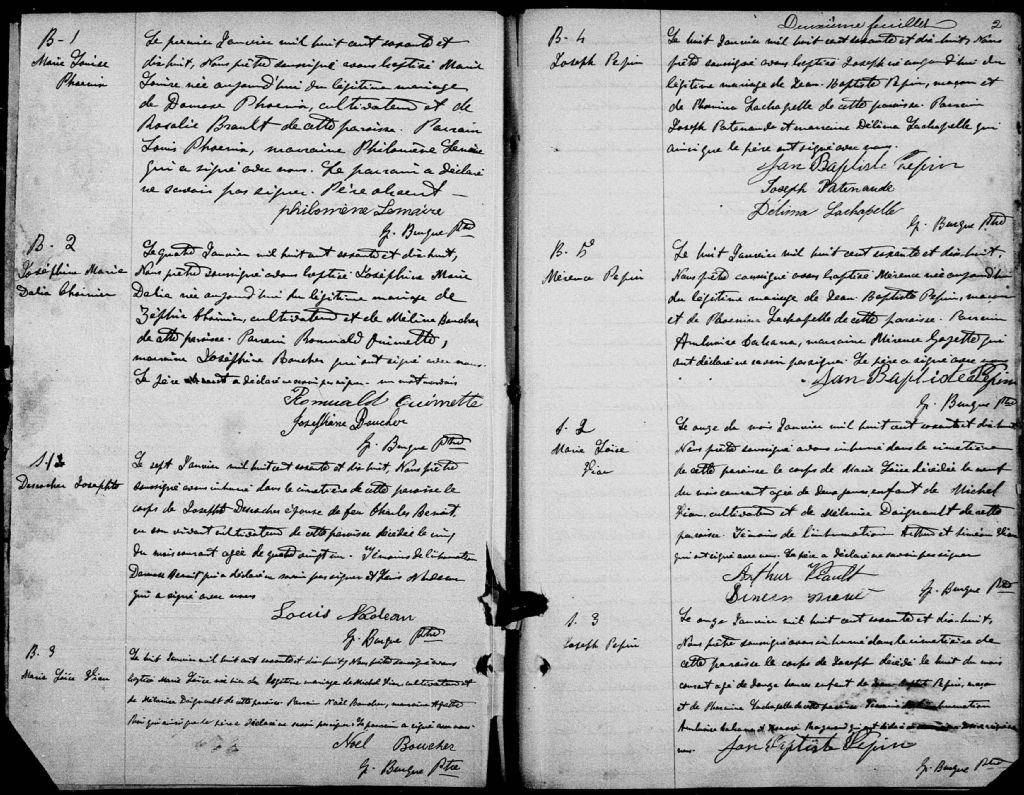 B-1
Marie Louise
Phoenix
Le premier Janvier mil huit cent soixante et
dix huit, Nous prêtre soussigné avons baptisé Marie
Louise née aujourd'hui du légitime mariage
de Damase Phoenix, cultivateur et de
Rosalie Brault de cette paroisse. Parrain
Louis Phoenix, marraine Philomène Lemaire
qui a signé avec nous. Le parrain a déclaré
ne savoir pas signer. Père absent
philomène Lemaire
G. Burque Ptre
B- 2
Joséphine Marie
Delia
Le quatre Janvier mil huit cent soixante et dix huit,
Nous prêtre soussigné avons baptisé Joséphine Marie
Delia née aujourd'hui du légitime mariage de
cultivateur et de Mélina Boucher
de cette paroisse. Parrain Romuald Ouimette,
marraine Joséphine Boucher qui ont signé avec nous.
Le père a déclaré ne savoir pas signer.
Romuald Ouimette
Josephine Boucher
G. Burque Ptre
Desrocher Josephte
Le sept Janvier mil huit cent soixante et dix huit, Nous prêtre
soussigné avons inhumé dans le cimetière de cette paroisse le
corps de Josephte Desrocher épouse de feu Charles Benoit,
en son vivant cultivateur de cette paroisse décédée le cinq
du mois courant agée de quatre vingt un. Témoins de l'inhumation
Damase Benoit qui a déclaré ne savoir pas signer et Louis Nadeau
qui a signé avec nous
Louis Nadeau
G. Burque Ptre
B. 3
Marie
Le huit Janvier mil huit cent soixante et dix huit, Nous prêtre soussigné avons
baptisé Marie du légitime mariage de Michel cultivateur et
de Mélanie Daignault de cette paroisse Parrain Noël Boucher, marraine
a déclaré ne savoir pas signer. Le parrain a signé avec nous.
Noël Boucher
G. Burque Ptre
Deuxième feuillet
2
B- 4
Joseph Pepin
Le huit Janvier mil huit cent soixante et dix huit, Nous
prêtre soussigné avons baptisé Joseph né aujourd'hui du
légitime mariage de Jean-Baptiste Pepin, maçon et
de Phoenina Lachapelle de cette paroisse. Parrain
Joseph Patenaude et marraine Délima Lachapelle qui
ainsi que le père ont signé avec nous.
Jan Baptiste Pepin
Joseph Patenaude
Délima Lachapelle
G. Burque Ptre
B. 5
Mérence Pepin
Le huit Janvier mil huit cent soixante et dix huit,
Nous prêtre soussigné avons baptisé Mérence née aujourd'hui
du légitime mariage de Jean Baptiste Pepin, maçon
et de Phoenina Lachapelle de cette paroisse. Parrain
Ambroise marraine Mérence Goyette qui
ont déclaré ne savoir pas signer. Le père a signé avec nous
Jan Baptiste Pepin
G. Burque Ptre
S. 2
Marie
Le onze du mois Janvier mil huit cent soixante et dix huit
Nous prêtre soussigné avons inhumé dans le cimetière
de cette paroisse le corps de Marie décédée le neuf
du mois courant agée de deux jours, enfant de Michel
cultivateur et de Mélanie Daignault de cette
paroisse. Témoins de l'inhumation Arthur et
qui ont signé avec nous. Le père a déclaré ne savoir pas signer
Arthur
G. Burque Ptre
S. 3
Joseph Pepin
Le onze Janvier mil huit cent soixante et dix huit,
Nous prêtre soussigné avons inhumé dans le cimetière de
cette paroisse le corps de Joseph décédé le huit du mois
courant agé de douze heures enfant de Pepin, maçon
et de Phoenina Lachapelle de cette paroisse Témoins inhumation
nous.
Jan Baptiste Pepin
G. Burque Ptre